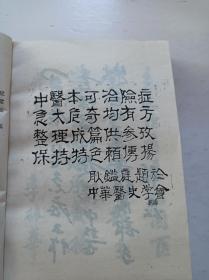 中醫本可治險症
急危奇均有方
整理成篇供参攷
保持特色賴傳揚
耿鑑庭題於
中華醫史学會